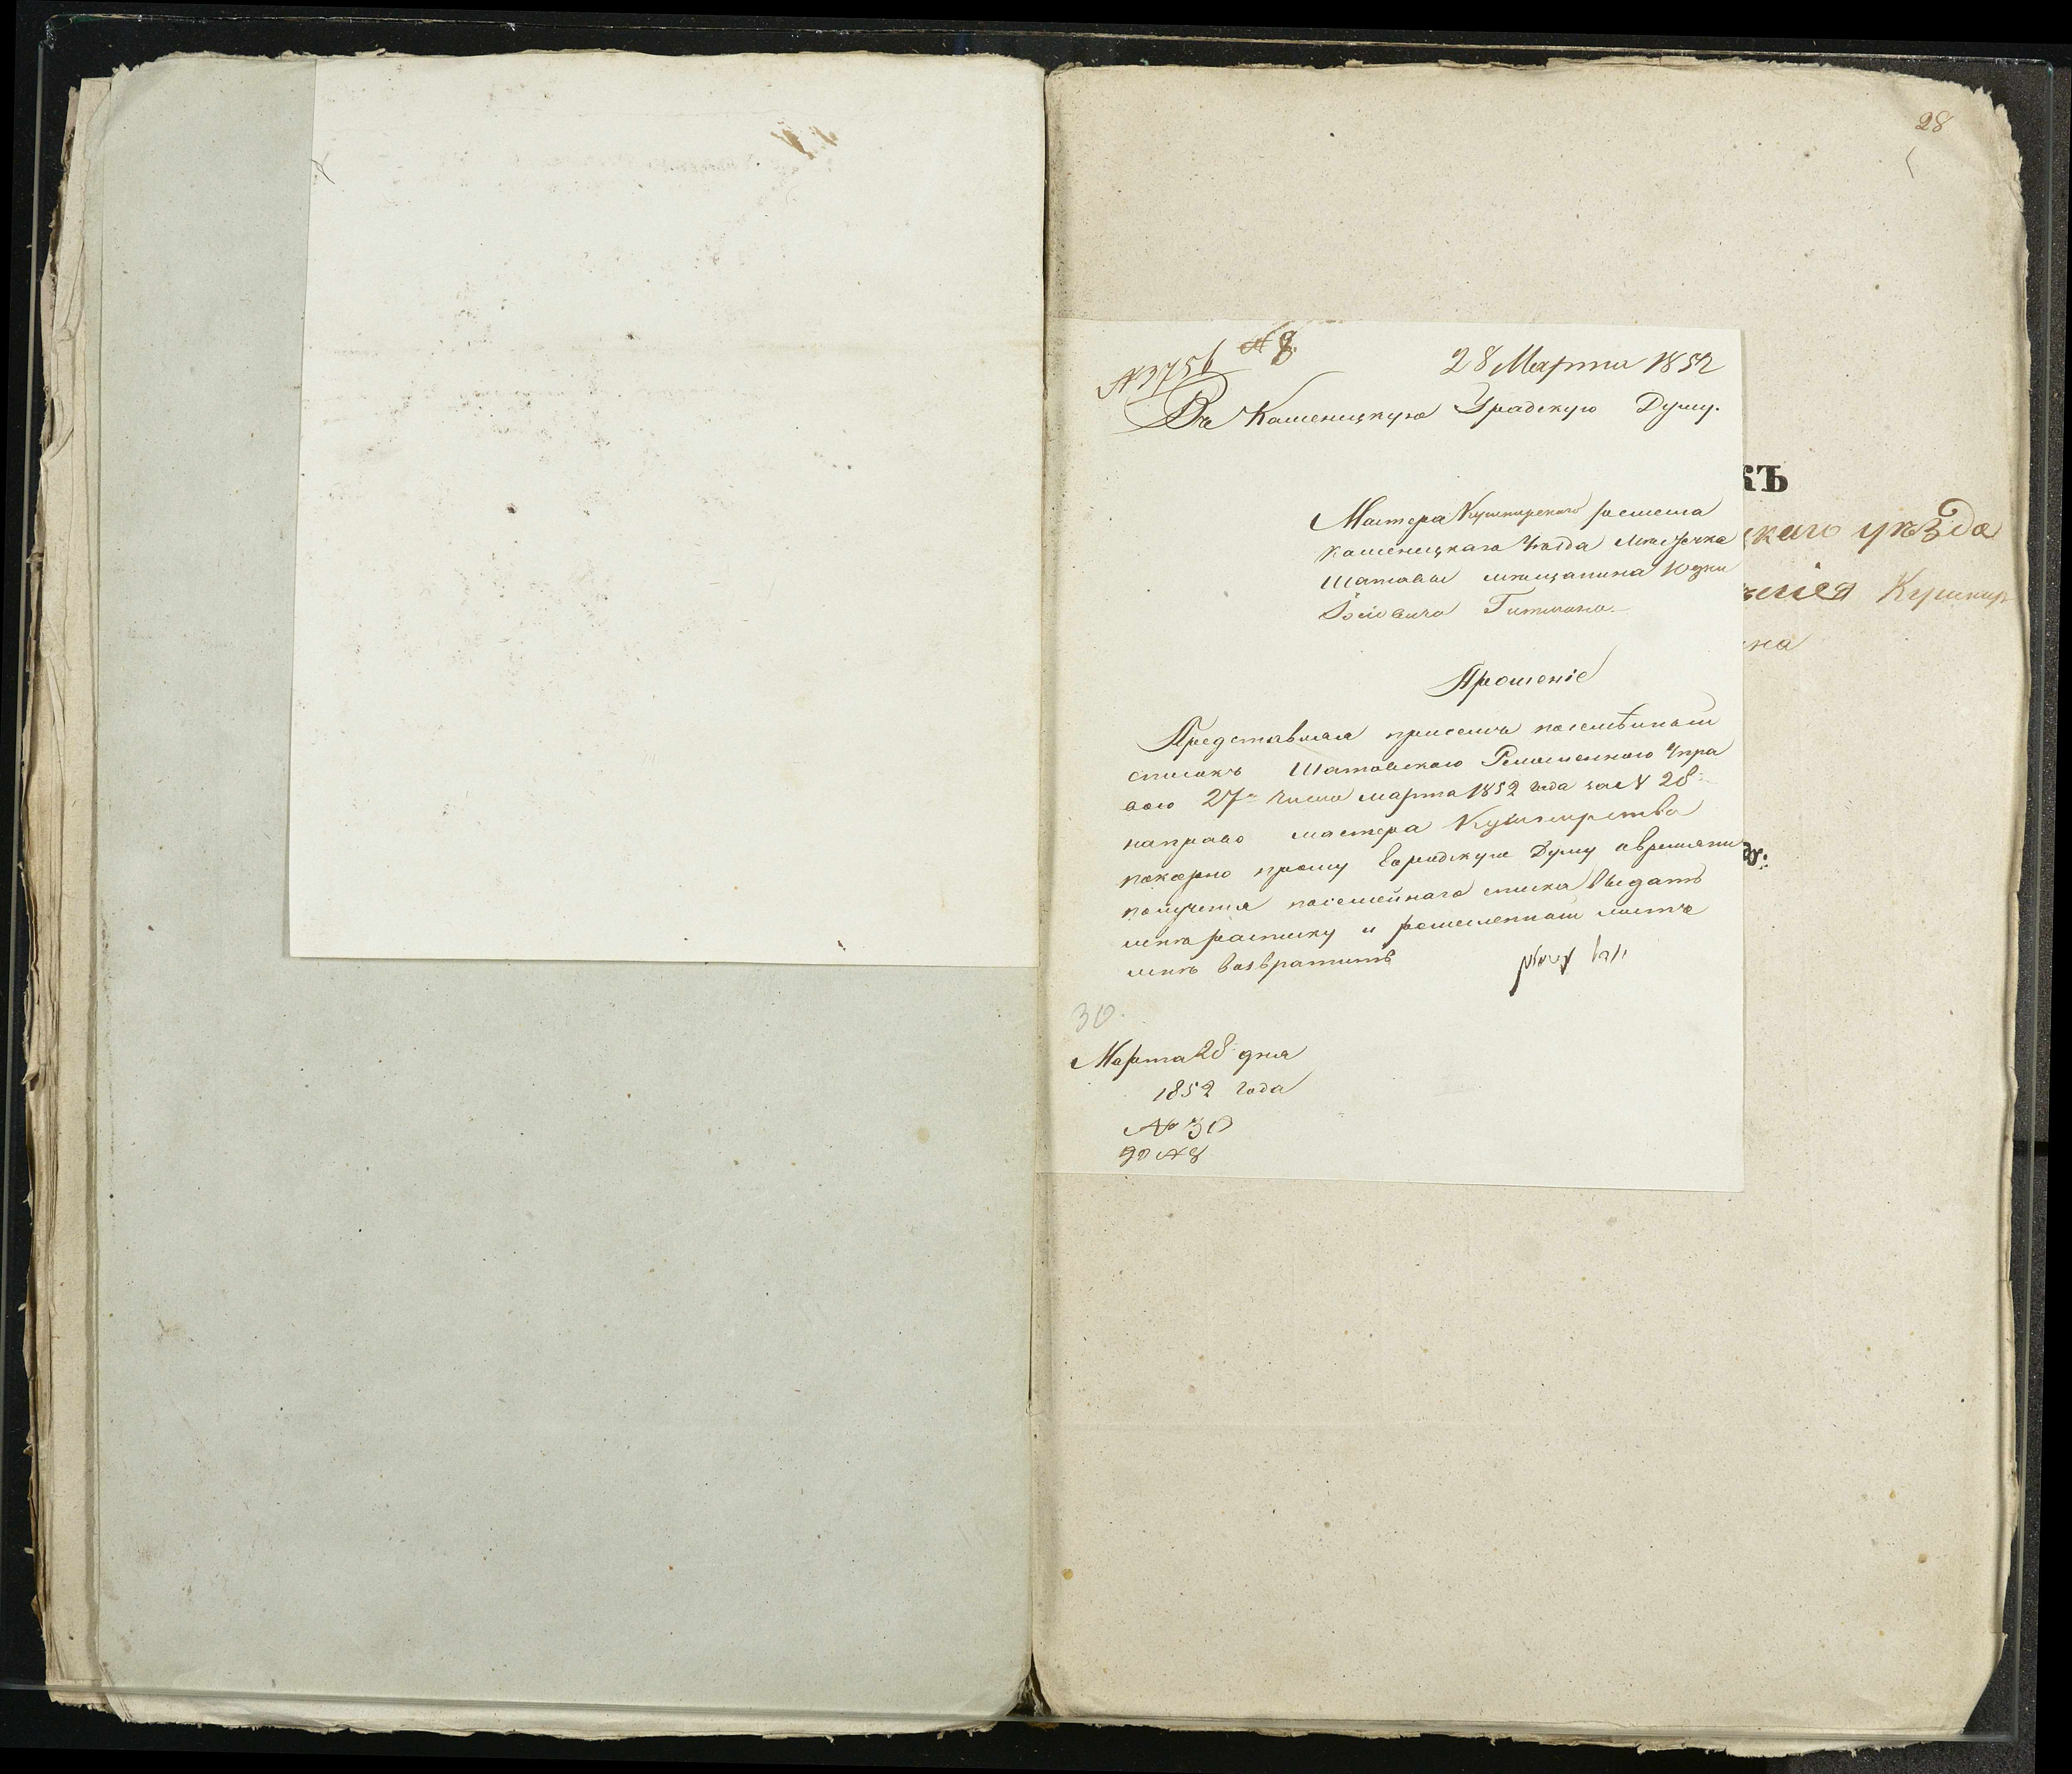 28
№ 3756 № 8.
28 Марта 1852
Въ Каменицкую Градскую Думу.
Мастера Кушнирского ремесла
каменицкаго Уезда местечка
Шатавы мещанина Юдки
Гитмана
Прошеніе
Представляя присемъ посемѣйный
списокъ Шатавского Ремесленного Упра
вою 27го числа марта 1852 года за № 28
направо мастера Кушнирства
покорно прошу Городскую Думу
получения посемейнаго списка выдать
мнѣ расписку и ремесленный листъ
мнѣ возвратить
30.
Марта 28 дня
1852 года
№ 30
№ 8
къ
скаго уѣзда
Кушнир
на
ду: